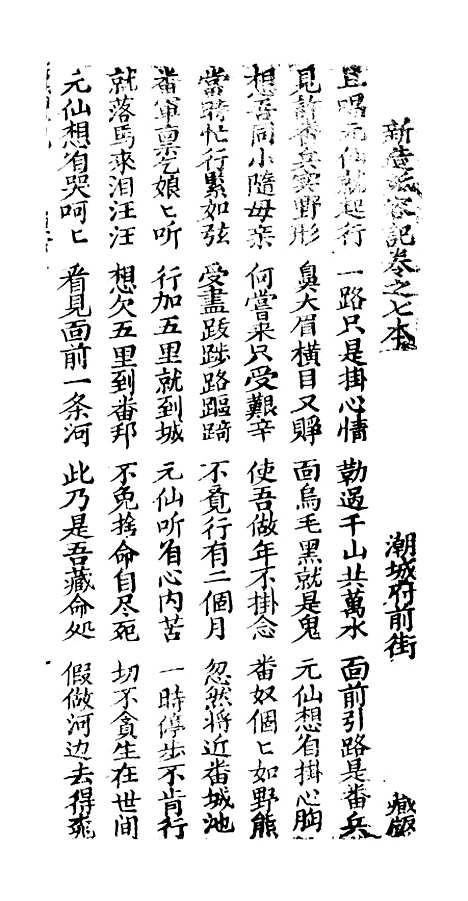 新造孟容記卷之七本 潮城府前街 藏版
且唱元仙就起行 一路只是掛心情 勒過千山共萬水 面前引路是番兵
見許番兵实野形 鼻大眉橫目又睜 面烏毛黑就是鬼 元仙想着掛心胸
想吾同小隨母亲 何嘗来只受艱辛 使吾做年不掛念 番奴個匕如野熊
當時忙行累如弦 受盡跋跣路䠓踦 不覔行有二個月 忽然将近番城池
番軍禀乞娘匕听 行加五里就到城 元仙听着心内苦 一時停步不肯行
就落馬來泪汪汪 想欠五里到番邦 不免捨命自尽死 切不貪生在世间
元仙想着哭呵匕 看見面前一条河 此乃是吾藏命処 假做河边去得